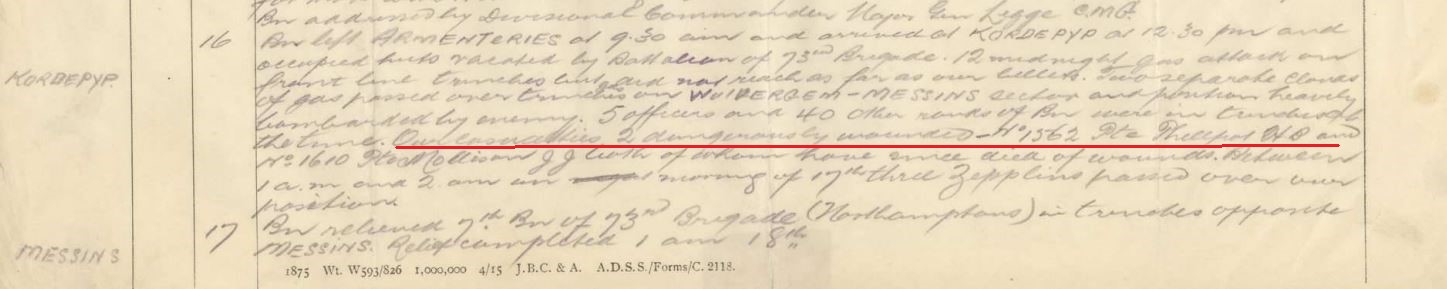 Bn addressed by Divisional Commander Major Gen Legge C.M.G.
16 Bn left ARMENTERIES at 9.30 am and arrived at KORDEPYP at 12.30 pm and
KORDEPYP. occupied huts vacated by Battalion of 73rd Brigade. 12 midnight gas attack on
front line trenches but did not reach as far as our billets. Two separate clouds
of gas passed over trenches in WULVERGEM - MESSINS sector and position heavily
bombarded by enemy. 5 officers and 40 other ranks of Bn were in trenches at
the time. Our casualties 2 dangerously wounded - No 1562 Pte Phillpot H O and
No. 1610 Pte Mollison J J both of whom have since died of wounds. Between
1 a.m and 2 am on morning of 17th three Zepplins passed over our
position.
17 Bn relieved 7th Bn of 73rd Brigade (Northamptons) in trenches opposite
MESSINS MESSINS. Relief completed 1 am 18th
1875 Wt. W593/826 1,000,000 4/15 J.B.C. & A. A.D.S.S./Forms/C. 2118.